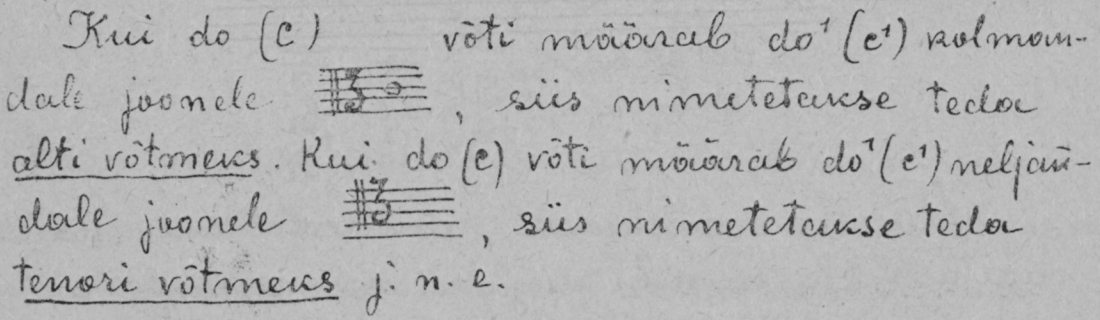 Kui do (c) võti määrab do¹ (c¹) kolman-
dale joonele , siis nimetetakse teda
alti võtmeks. Kui do (c) võti määrab do¹ (c¹) neljan-
dale joonele , siis nimetetakse teda
tenori võtmeks j. n. e.